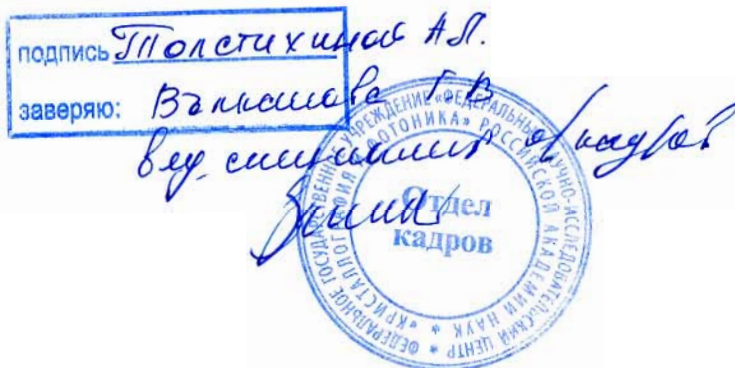 подпись Толстихиной А.Л.
заверяю:
Г.В
вед. специалист о/кадров
ФЕДЕРАЛЬНОЕ ГОСУДАРСТВЕННОЕ УЧРЕЖДЕНИЕ «ФЕДЕРАЛЬНЫЙ НАУЧНО-ИССЛЕДОВАТЕЛЬСКИЙ ЦЕНТР *
«КРИСТАЛЛОГРАФИЯ И ФОТОНИКА» РОССИЙСКОЙ АКАДЕМИИ НАУК *
Отдел
кадров